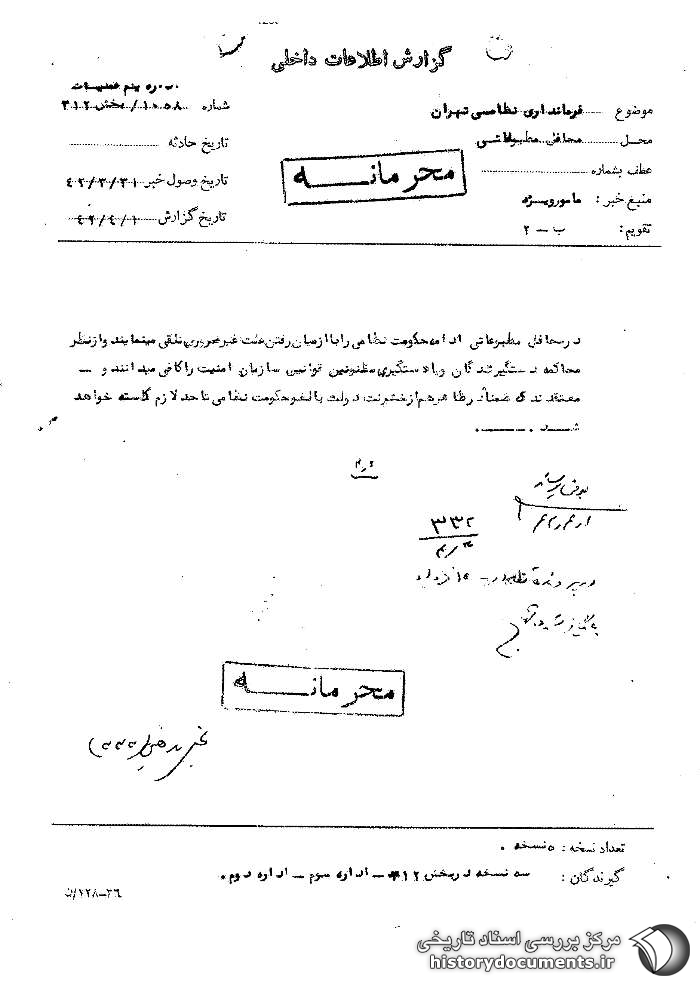 گزارش اطلاعات داخلی
موضوع فرمانداری نظامی تهران
شماره ۱۰۵۸ / بخش ۳۱۲
محل محافل مطبوعاتی
تاریخ حادثه
عطف بشماره
تاریخ وصول خبر ۴۲/۳/۳۱
منبع خبر : مامور ویژه
تاریخ گزارش ۴۲/۴/۱
تقویم: ب – ۲
محرمانه
در محافل مطبوعاتی ادامه حکومت نظامی را با از میان رفتن علت غیر ضروری تلقی مینمایند و از نظر
محاکمه دستگیرشدگان و یا دستگیری مظنونین قوانین سازمان امنیت را کافی میدانند و –
معتقدند که ضمناً در ظاهر هم از خشونت دولت با لغو حکومت نظامی تا حد لازم کاسته خواهد
شد .
بعرض رسید
۳۳۲
محرمانه
تعداد نسخه : ۵ نسخه .
گیرندگان : سه نسخه در بخش ۳۱۲ – اداره سوم – اداره دوم .
۳۶–۱۲۸/ن
مرکز بررسی اسناد تاریخی
historydocuments.ir